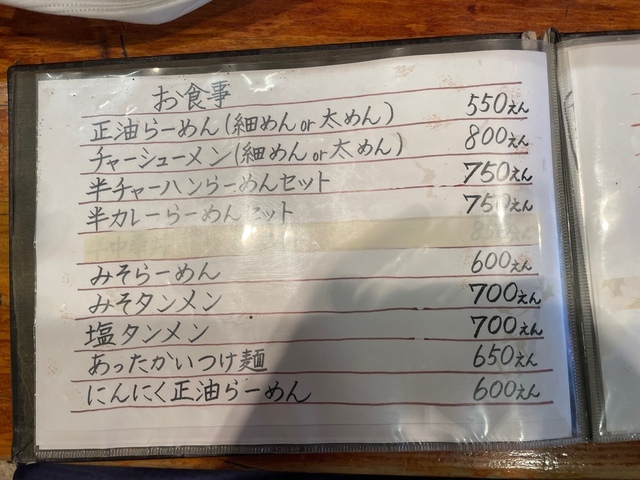 お食事
正油らーめん(細めんor太めん) 550えん
チャーシューメン(細めんor太めん) 800えん
半チャーハンらーめんセット 750えん
半カレーらーめんセット 750えん
みそらーめん 600えん
みそタンメン 700えん
塩タンメン 700えん
あったかいつけ麺 650えん
にんにく正油らーめん 600えん